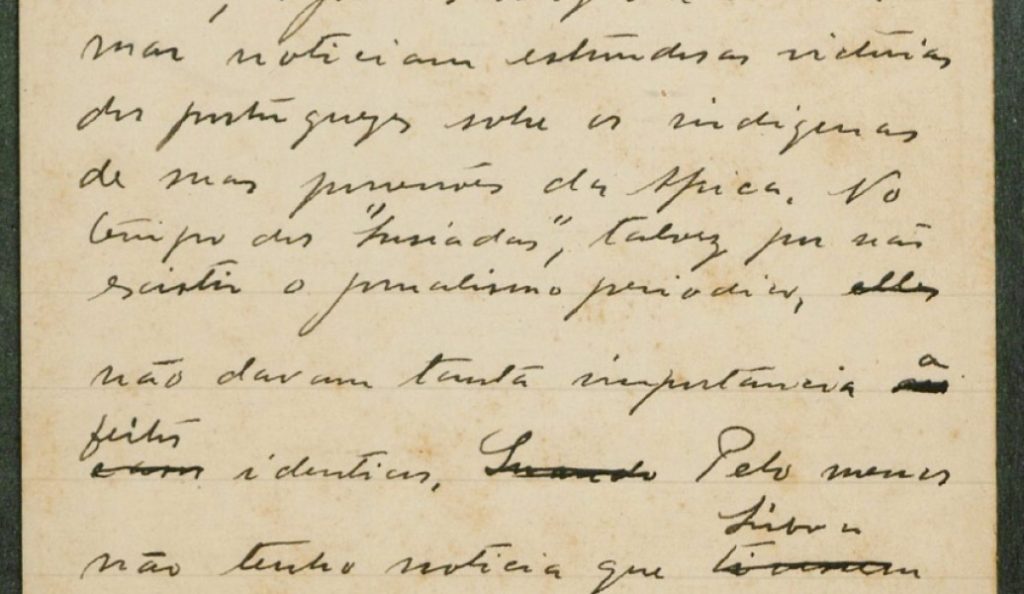 mar noticiam estrondosas victorias
dos portuguezes sobre os indigenas
de suas possessões da Africa. No
tempo dos "Lusiadas", talvez por não
existir o jornalismo periodico, elles
a
não davam tanta importância
feitos
casos identicos. Quando Pelo menos
Lisboa
não tenho noticia que tivessem